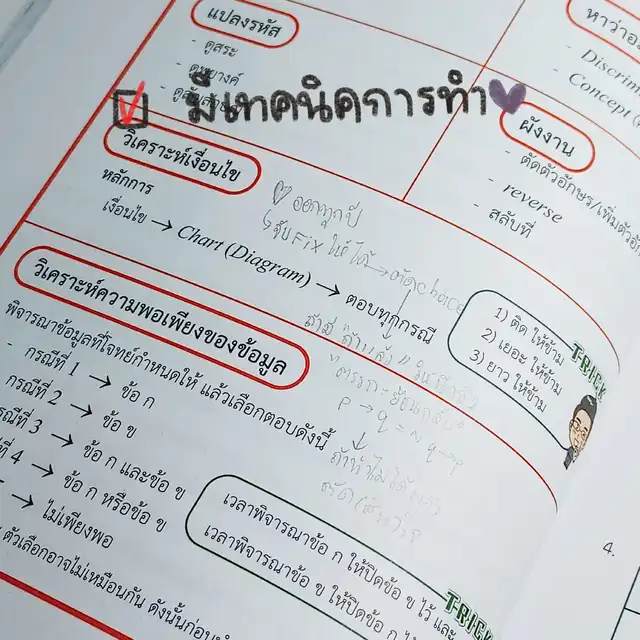 แปลงรหัส
- ดูสระ
มีเทคนิคการทำ
หาว่าอ
- Discrim
- Concept (
ผังงาน
- ตัดตัวอักษร/เพิ่มตัวอัก
- reverse
- สลับที่
วิเคราะห์เงื่อนไข
หลักการ
เงื่อนไข → Chart (Diagram) → ตอบทุกกรณี
ออกทุกปี
จับ FIX ให้ได้ → ตัด choice
1) ติด ให้ข้าม
2) เยอะ ให้ข้าม
3) ยาว ให้ข้าม
TRICK
วิเคราะห์ความพอเพียงของข้อมูล
พิจารณาข้อมูลที่โจทย์กำหนดให้ แล้วเลือกตอบดังนี้
- กรณีที่ 1 → ข้อ ก
กรณีที่ 2 → ข้อ ข
รณีที่ 3 → ข้อ ก และข้อ ข
ที่ 4 → ข้อ ก หรือข้อ ข
→ ไม่เพียงพอ
ตัวเลือกอาจไม่เหมือนกัน ดังนั้นก่อน
เวลาพิจารณาข้อ ก ให้ปิดข้อ ข ไว้ และ
เวลาพิจารณาข้อ ข ให้ปิดข้อ ก ไ
TRICK
4.